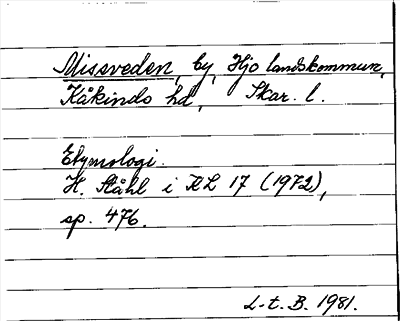 Missveden, by, Hjo landskommun,
Kåkinds hd, Skar. l.
Etymologi.
H. Ståhl i KL 17 (1972),
sp. 476.
L-t. B. 1981.